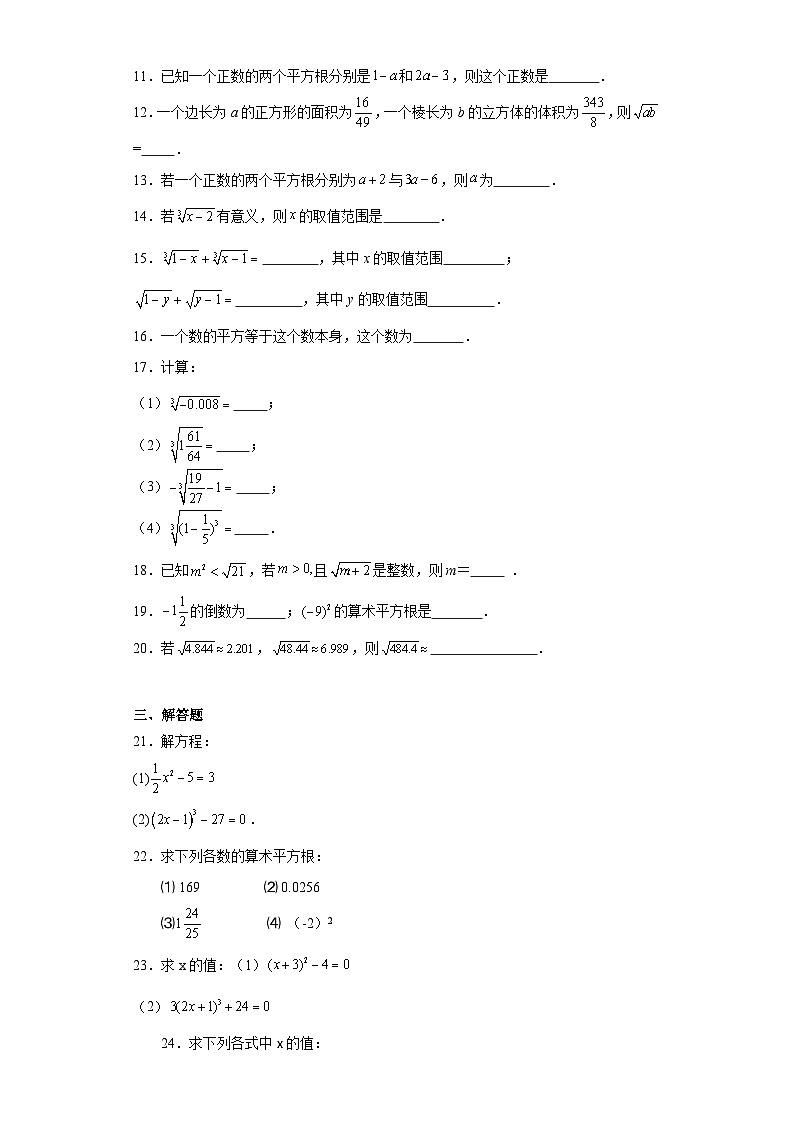 11．已知一个正数的两个平方根分别是1−a和2a−3，则这个正数是_______．
12．一个边长为a的正方形的面积为16/49,一个棱长为b的立方体的体积为343/8,则√(ab)
=_____．
13．若一个正数的两个平方根分别为a+2与3a−6，则a为________．
14．若∛(x−2)有意义，则x的取值范围是________．
15．∛(1−x)+∛(x−1)= ________，其中x的取值范围_________；
√(1−y)+√(y−1)= __________，其中y的取值范围__________．
16．一个数的平方等于这个数本身，这个数为_______．
17．计算：
（1）∛(−0.008)= _____；
（2）∛(1 61/64)= _____；
（3）−∛(19/27−1)= _____；
（4）∛((1−1/5)³)= _____．
18．已知m²<√21，若m>0,且√(m+2)是整数，则m＝_____ ．
19．−1 1/2的倒数为______；(−9)²的算术平方根是_______．
20．若√4.844≈2.201，√48.44≈6.989，则√484.4≈________________．
三、解答题
21．解方程：
(1) 1/2 x²−5=3
(2)(2x−1)³−27=0．
22．求下列各数的算术平方根：
⑴ 169 ⑵ 0.0256
⑶1 24/25 ⑷ （-2）²
23．求x的值：（1）(x+3)²−4=0
（2）3(2x+1)³+24=0
24．求下列各式中x的值：